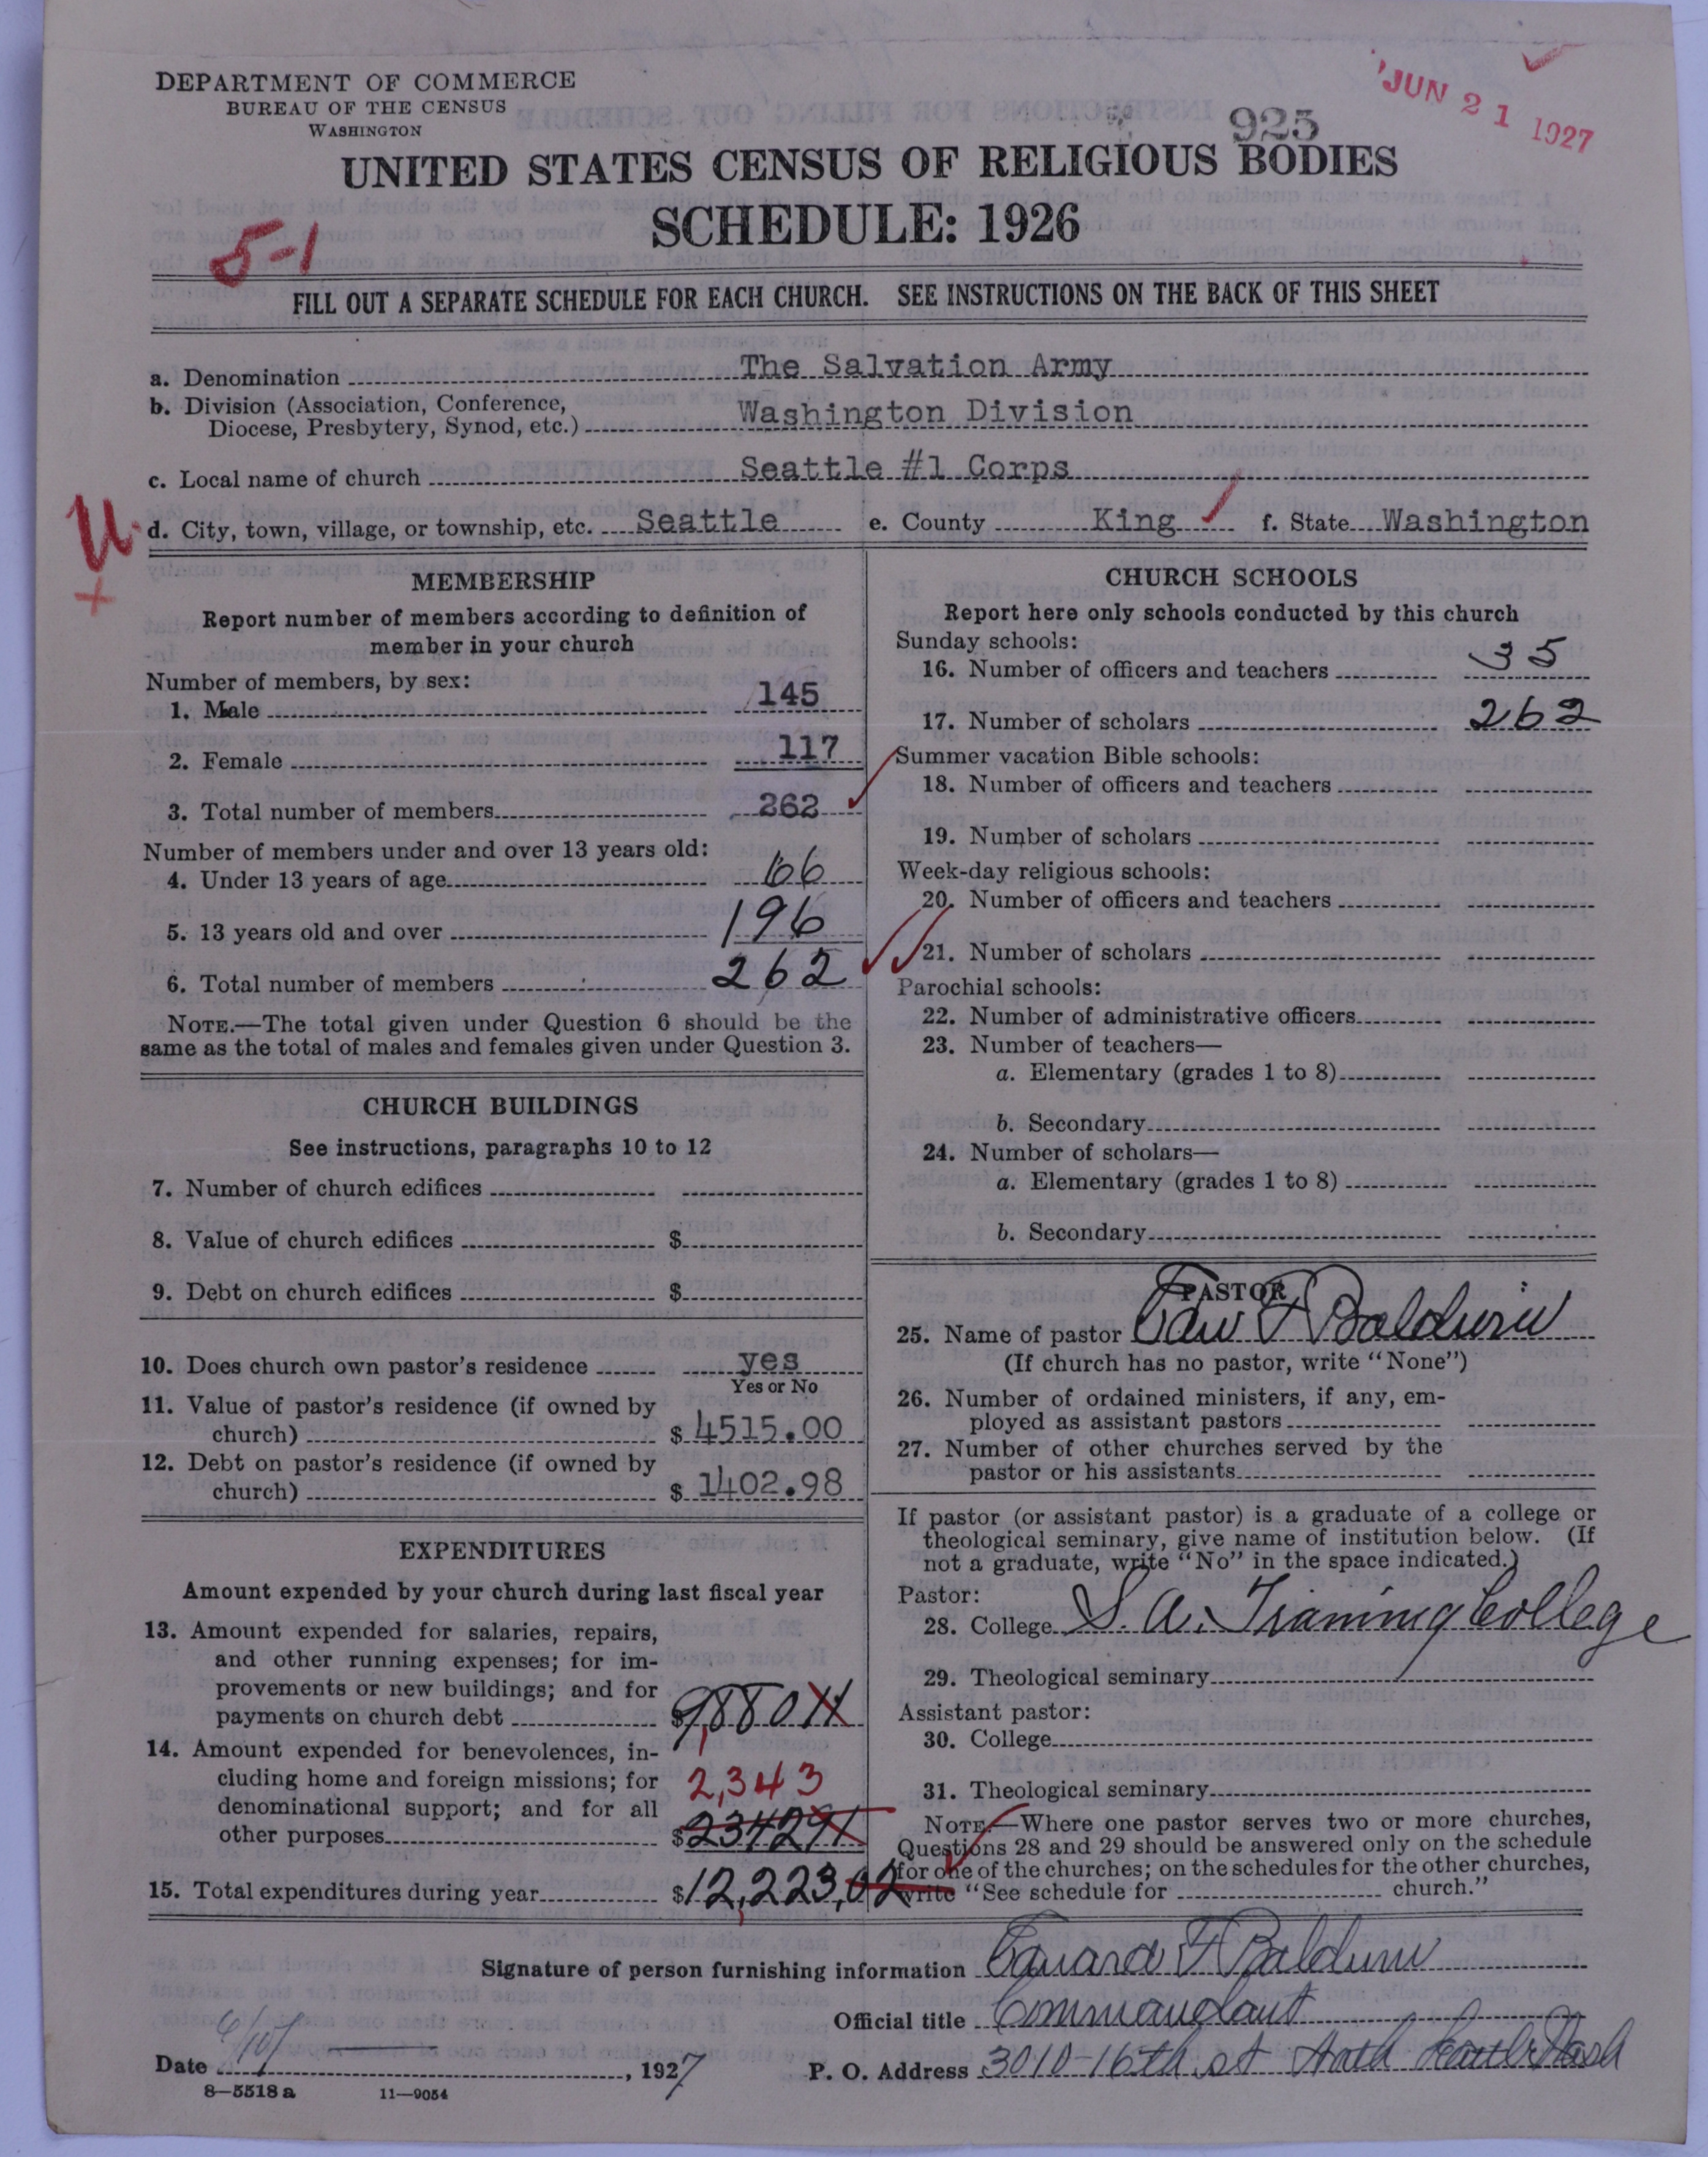 DEPARTMENT OF COMMERCE
BUREAU OF THE CENSUS
WASHINGTON
925
JUN 21 1927
UNITED STATES CENSUS OF RELIGIOUS BODIES
SCHEDULE: 1926
5-1
FILL OUT A SEPARATE SCHEDULE FOR EACH CHURCH. SEE INSTRUCTIONS ON THE BACK OF THIS SHEET
a. Denomination The Salvation Army
b. Division (Association, Conference, Diocese, Presbytery, Synod, etc.) Washington Division
c. Local name of church Seattle #1 Corps
U
d. City, town, village, or township, etc. Seattle e. County King f. State Washington
MEMBERSHIP
Report number of members according to definition of
member in your church
Number of members, by sex:
1. Male 145
2. Female 117
3. Total number of members 262
Number of members under and over 13 years old:
4. Under 13 years of age 66
5. 13 years old and over 196
6. Total number of members 262
NOTE.—The total given under Question 6 should be the
same as the total of males and females given under Question 3.
CHURCH BUILDINGS
See instructions, paragraphs 10 to 12
7. Number of church edifices
8. Value of church edifices $
9. Debt on church edifices $
10. Does church own pastor's residence yes
Yes or No
11. Value of pastor's residence (if owned by
church) $ 4515.00
12. Debt on pastor's residence (if owned by
church) $ 1402.98
EXPENDITURES
Amount expended by your church during last fiscal year
13. Amount expended for salaries, repairs,
and other running expenses; for im-
provements or new buildings; and for
payments on church debt $9,880 11
14. Amount expended for benevolences, in-
cluding home and foreign missions; for 2,343
denominational support; and for all
other purposes $2342 91
15. Total expenditures during year $12,223,02
CHURCH SCHOOLS
Report here only schools conducted by this church
Sunday schools:
16. Number of officers and teachers 35
17. Number of scholars 262
Summer vacation Bible schools:
18. Number of officers and teachers
19. Number of scholars
Week-day religious schools:
20. Number of officers and teachers
21. Number of scholars
Parochial schools:
22. Number of administrative officers
23. Number of teachers—
a. Elementary (grades 1 to 8)
b. Secondary
24. Number of scholars—
a. Elementary (grades 1 to 8)
b. Secondary
PASTOR
25. Name of pastor Edw F Baldwin
(If church has no pastor, write "None")
26. Number of ordained ministers, if any, em-
ployed as assistant pastors
27. Number of other churches served by the
pastor or his assistants
If pastor (or assistant pastor) is a graduate of a college or
theological seminary, give name of institution below. (If
not a graduate, write "No" in the space indicated.)
Pastor:
28. College S. A. Training College
29. Theological seminary
Assistant pastor:
30. College
31. Theological seminary
NOTE.—Where one pastor serves two or more churches,
Questions 28 and 29 should be answered only on the schedule
for one of the churches; on the schedules for the other churches,
write "See schedule for church."
Signature of person furnishing information Edward F Baldwin
Official title Commandant
Date 6/10/ , 1927 P. O. Address 3010-16th st South Seattle Wash
8—5518 a 11—9054